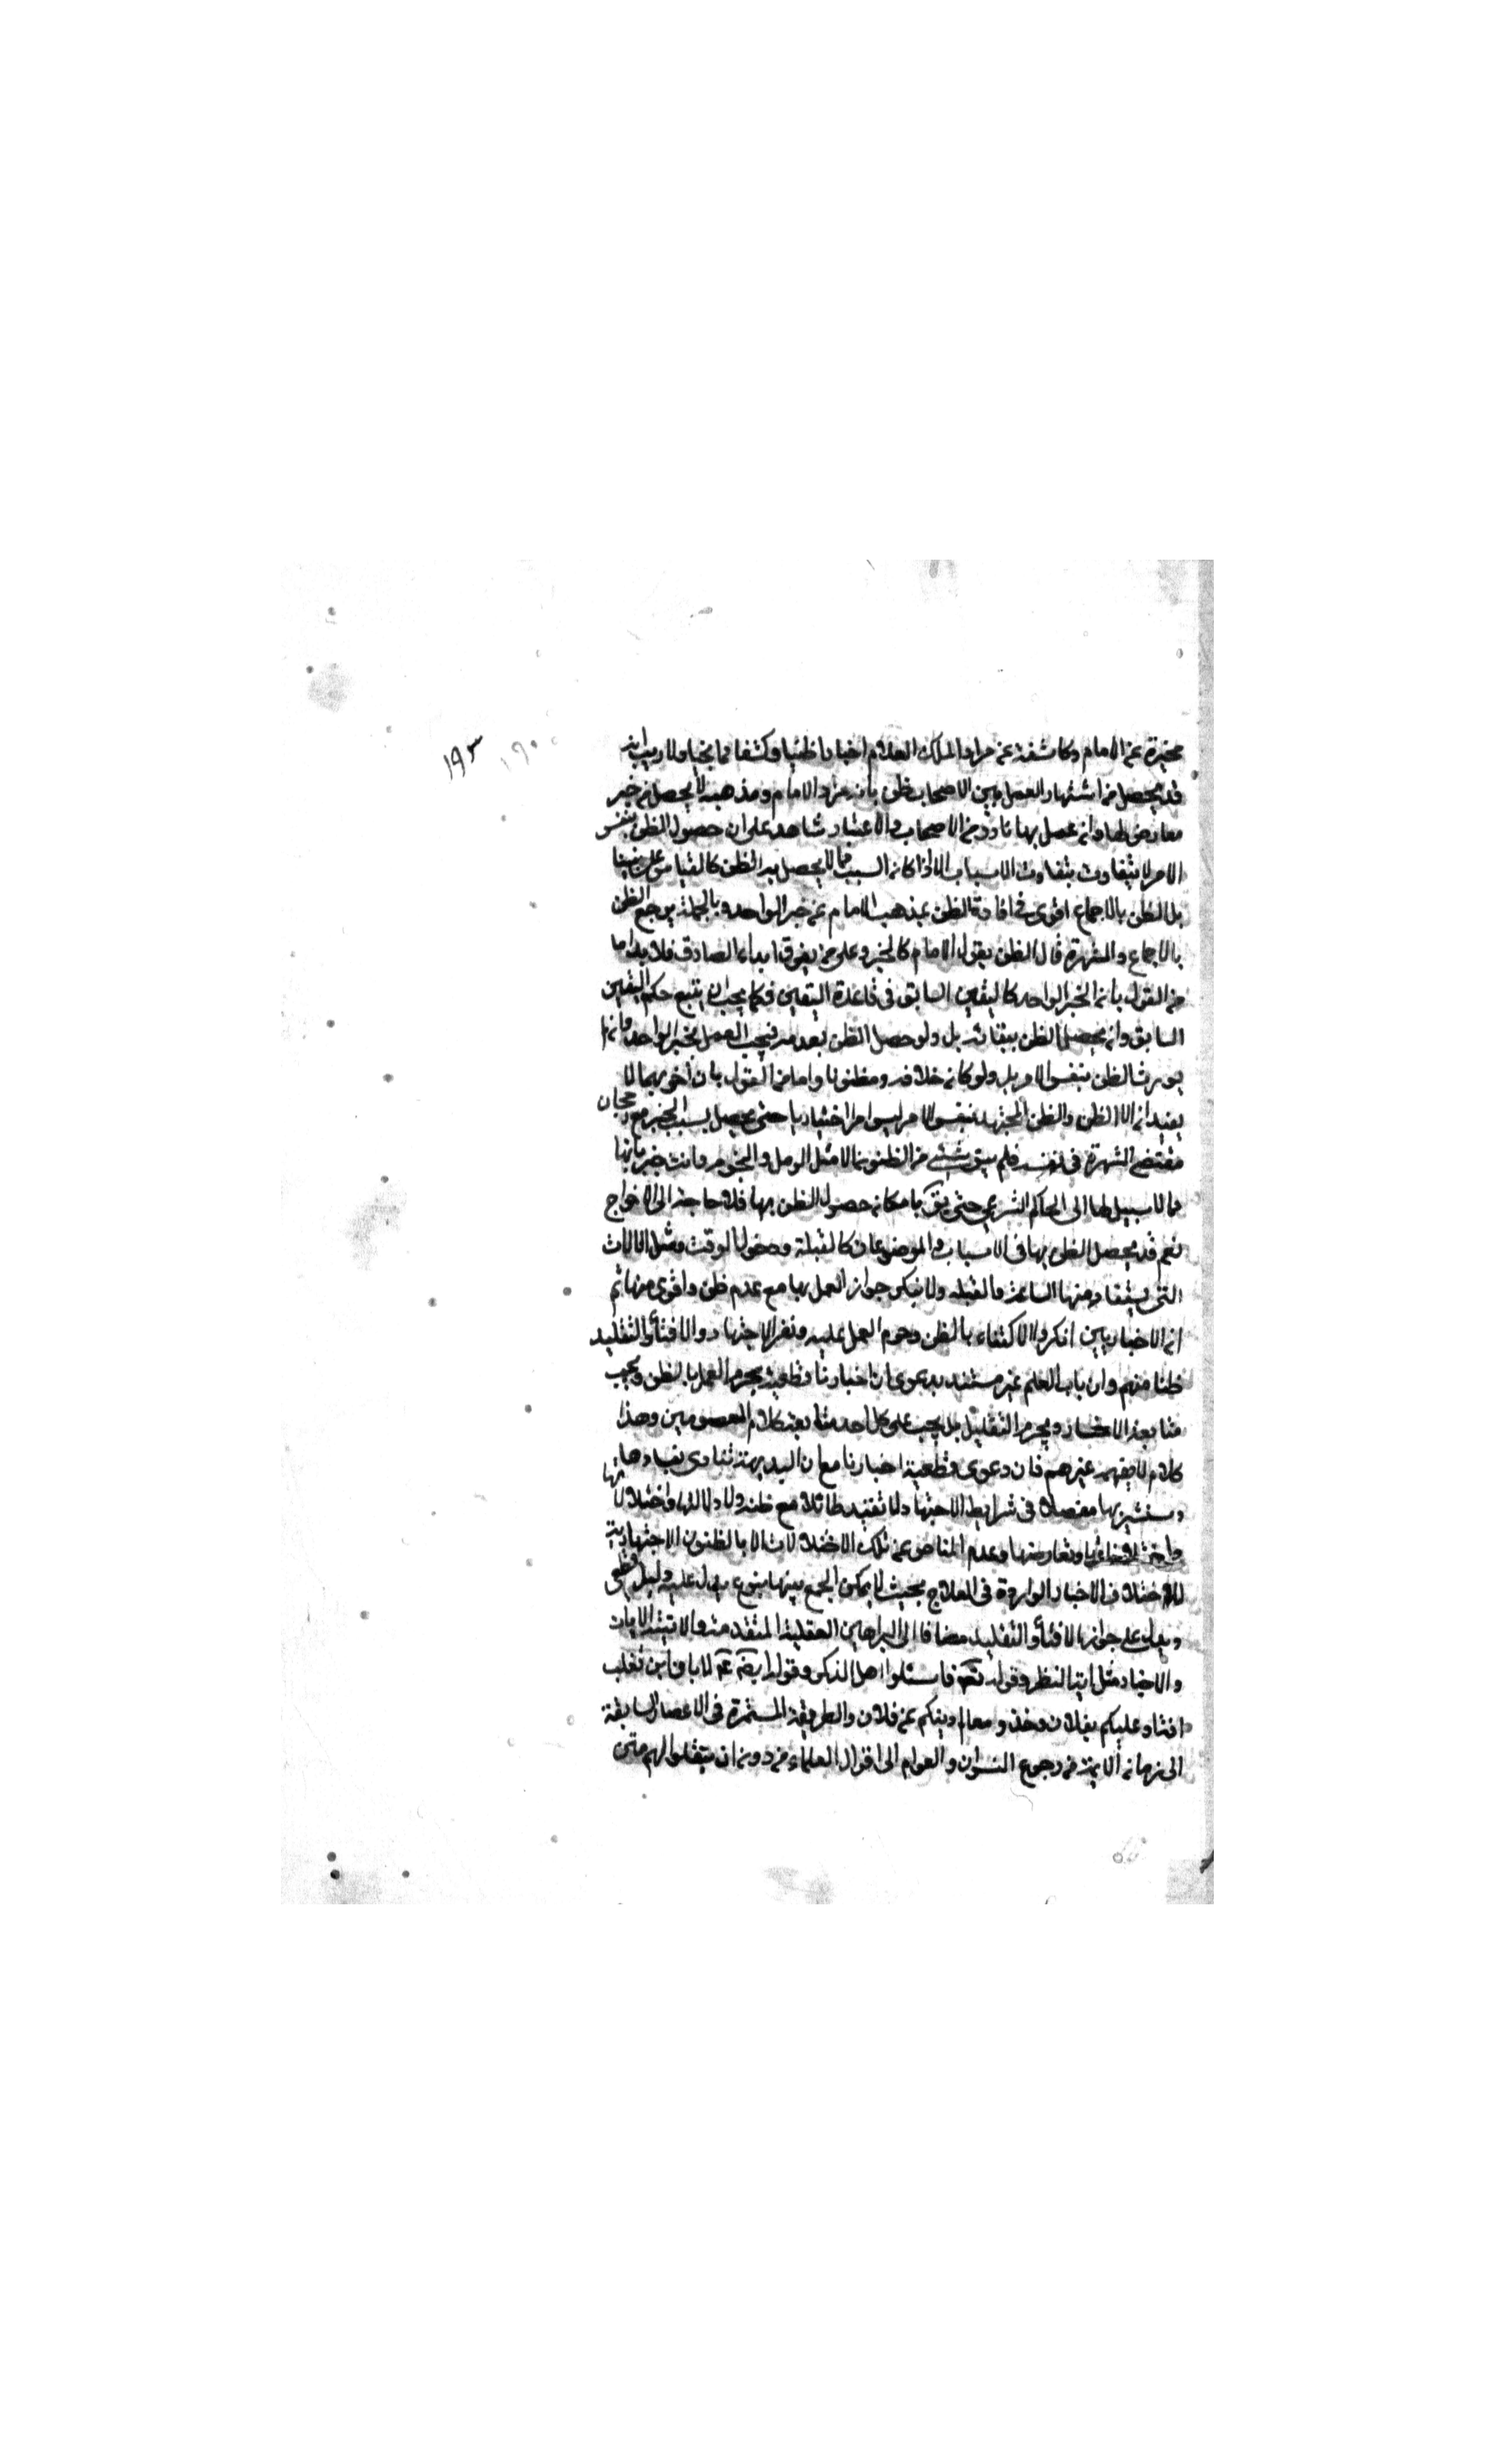 مخبرة عن الامام وكاشفة عن مراد الملك العلام اخبارا ظنيا وكشفا ولا ريب انه
قد يحصل من اشتهار العمل بين الاصحاب ظن بانه مراد الامام ومذهبه لا يحصل من خبر
معارض لها وان عمل بها نادر من الاصحاب والاعتبار شاهد على ان حصول الظن بنفس
الامر لا يتفاوت بتفاوت الاسباب الا اذا كان السبب مما لا يحصل به الظن كالقياس على
بل الظن بالاجماع اقوى في افادة الظن بمذهب الامام من خبر الواحد وبالجملة يرجع الظن
بالاجماع والشهرة الظن بقول الامام كالخبر وعلى من ابداء الصادق فلابد اما
من القول بان الخبر الواحد كاليقين السابق في قاعدة اليقين فكما يجب ان يتبع حكم اليقين
السابق وان لم يحصل الظن ببقائه بل ولو حصل الظن بعدمه فيجب العمل بخبر الواحد وان لم
يورث الظن بنفس الامر بل ولو كان خلافه مظنونا واما من القول بان
يفيد ان الا الظن والظن للمجتهد بنفس الامر ليس امرا اختياريا حتى يحصل بسبب الخبر مع رجحان
مقتضى الشهرة في نفسه فلم يبق شيء من الظنون الا مثل الرمل والنجوم وانت خبير بانها
مما لا سبيل لها الى الحاكم الشرعي حتى يق بامكان حصول الظن بها فلا حاجة الى الاخراج
نعم قد يحصل الظن بها في الاسباب والموضوعات كالقبلة ودخول الوقت ومثل الالات
التي يستفاد منها الساعة والقبلة ولا ينكر جواز العمل بها مع عدم ظن اقوى منها ثم
ان الاخباريين انكروا الاكتفاء بالظن وحرم العمل عليه ونفوا الاجتهاد والافتاء والتقليد
ظنا منهم وان باب العلم غير مستند بدعوى ان اخبارنا قطعية يحرم العمل بالظن ويجب
متابعة الاخبار ويحرم التقليد بل يجب على كل احد متابعة كلام المعصومين وهذا
كلام لا يفهمه غيرهم فان دعوى قطعية اخبارنا مع ان البديهة تنادى بفسادها
وسنشير بها مفصلا في شرايط الاجتهاد لا تفيد طائلا مع ظنية دلالتها واختلالاتها
واختلافاتها وتعارضها وعدم المناص عن تلك الاختلالات الا بالظنون الاجتهادية
للاختلاف الاخبار الواردة في العلاج بحيث لا يمكن الجمع بينها بنوع يدل عليه دليل قطعي
ويدل على جواز الافتاء والتقليد مضافا الى البراهين العقلية المتقدمة والاتية الايات
والاخبار مثل اية النفر وقوله تع فاسئلوا اهل الذكر وقول ايضا لابان ابن تغلب
افت وعليكم بفلان وخذوا معالم دينكم عن فلان والطريقة المستمرة في الاعصار السابقة
الى زمان الائمة من رجوع النسوان والعوام الى اقوال العلماء من دون ان ينقلوا لهم متن
١٩٣